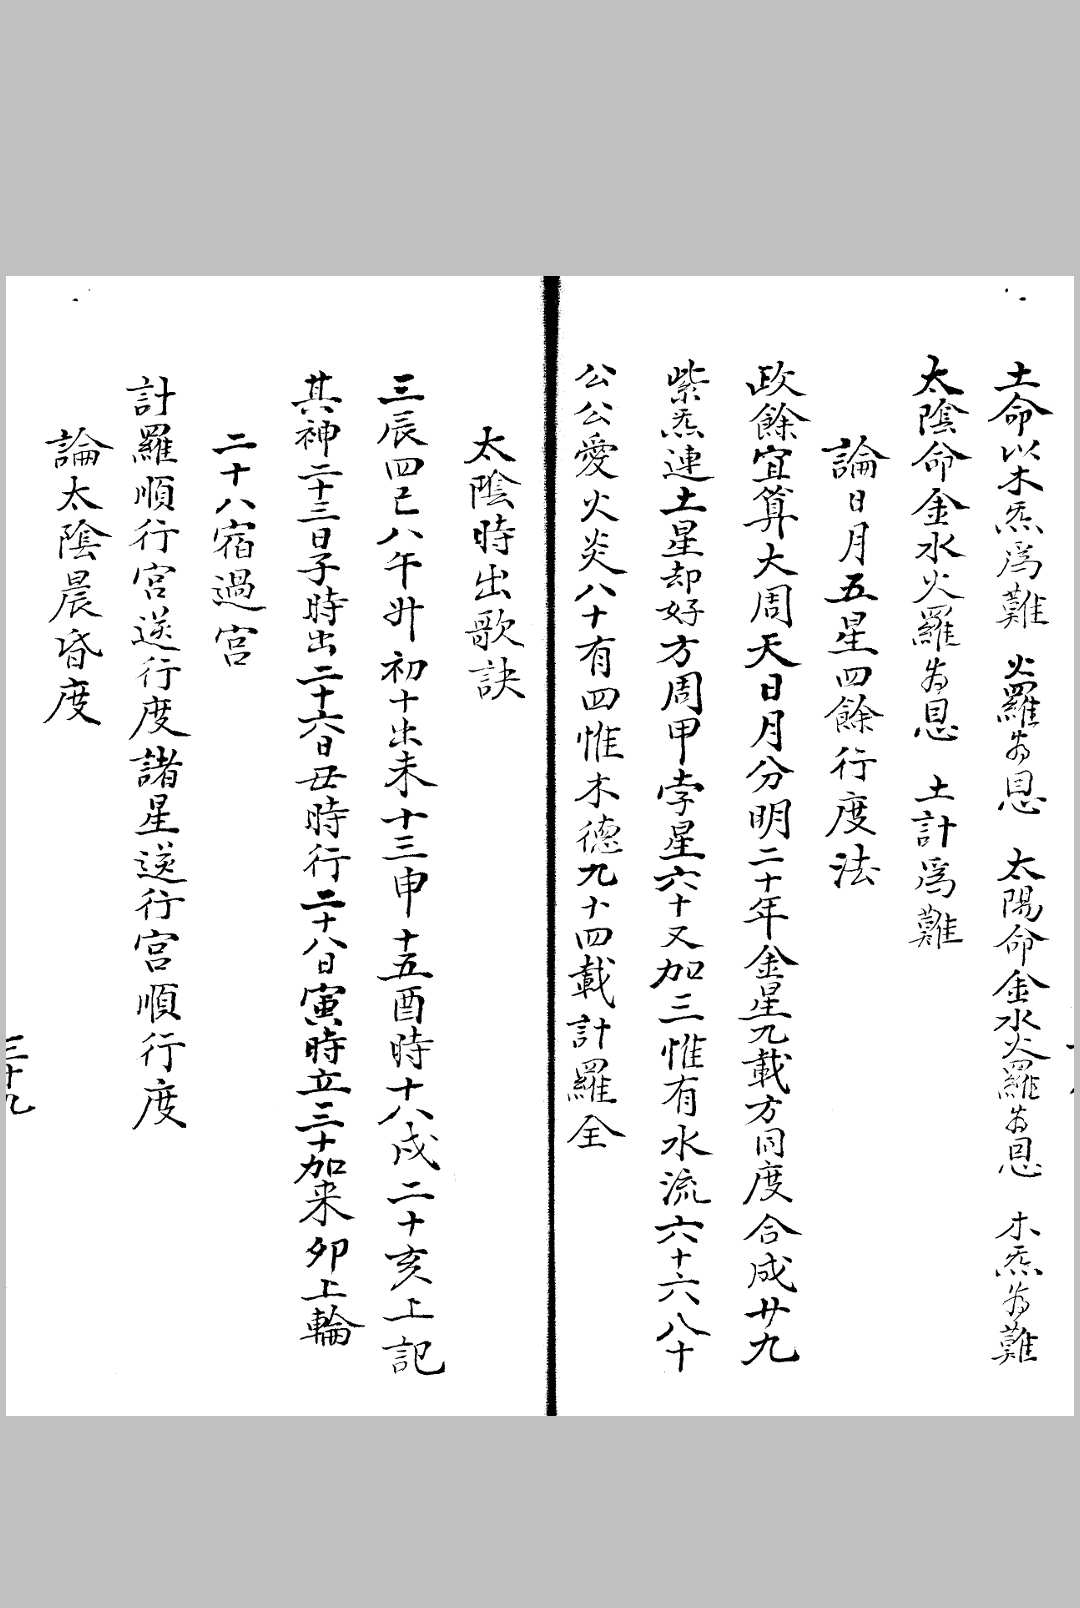 土命以木炁爲難 火羅為恩 太陽命金水火羅為恩 木炁為難
太陰命金水火羅為恩 土計爲難
論日月五星四餘行度法
政餘宜算大周天日月分明二十年金星九載方同度合成廿九
紫炁連土星却好方周甲孛星六十又加三惟有水流六十六八十
公公愛火炎八十有四惟木德九十四載計羅全
太陰時出歌訣
三辰四巳八午升初十出未十三申十五酉時十八戌二十亥上記
其神二十三日子時出二十六日丑時行二十八日寅時立三十加来卯上輪
二十八宿過宮
計羅順行宮逆行度諸星逆行宮順行度
論太陰晨昏度
三十九